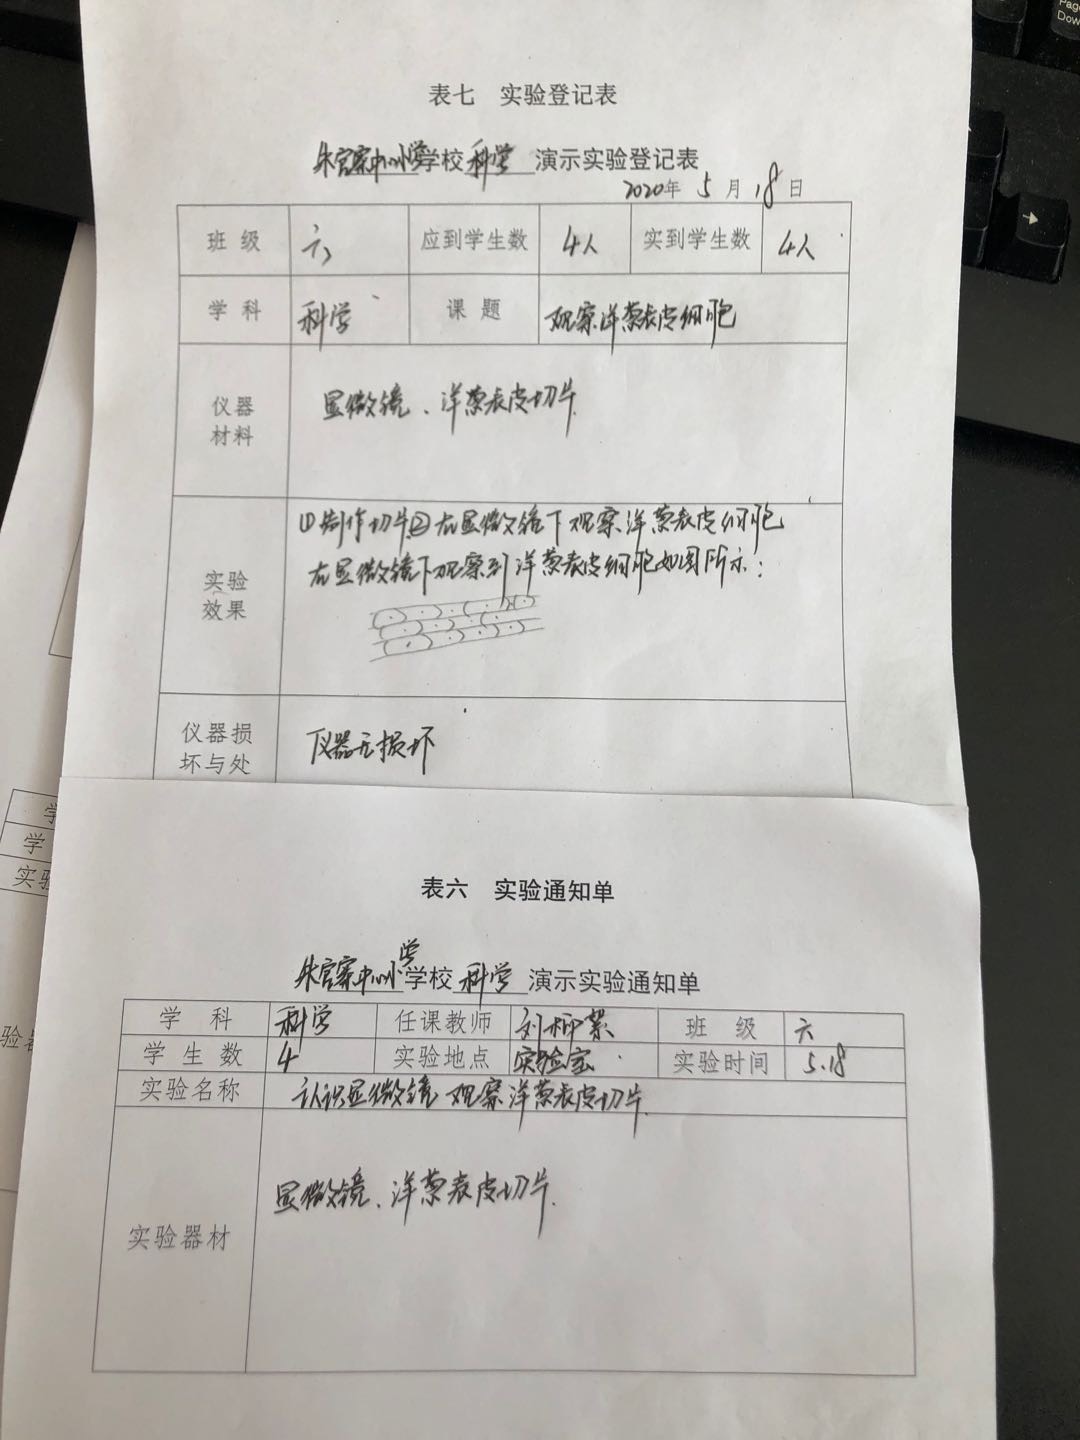 表七 实验登记表
朱官寨中心小学学校 科学 演示实验登记表
2020年 5 月 18 日
班 级 六 应到学生数 4人 实到学生数 4人
学 科 科学 课 题 观察洋葱表皮细胞
仪器
材料
显微镜、洋葱表皮切片
①制作切片②在显微镜下观察洋葱表皮细胞
在显微镜下观察到洋葱表皮细胞如图所示：
实验
效果
仪器损
坏与处
仪器无损坏
表六 实验通知单
朱官寨中心小学学校 科学 演示实验通知单
学 科 科学 任课教师 刘柳絮 班 级 六
学 生 数 4 实验地点 实验室 实验时间 5.18
实验名称 认识显微镜 观察洋葱表皮切片
实验器材
显微镜、洋葱表皮切片.
学
学
实验
验器
Page
Dow